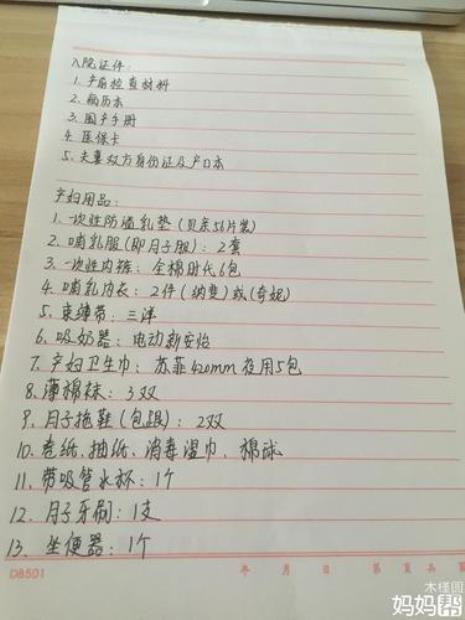 入院证件:
1. 产前检查材料
2. 病历本
3. 围产手册
4. 医保卡
5. 夫妻双方身份证及户口本
产妇用品:
1. 一次性防溢乳垫 (贝亲56片装)
2. 哺乳服 (即月子服): 2套
3. 一次性内裤: 全棉时代6包
4. 哺乳内衣: 2件 ( ) 或 ( )
5. 束缚带: 三洋
6. 吸奶器: 电动新安怡
7. 产妇卫生巾: 苏菲420mm夜用5包
8. 薄棉袜: 3双
9. 月子拖鞋 (包跟): 2双
10. 卷纸、抽纸、消毒湿巾、棉球
11. 带吸管水杯: 1个
12. 月子牙刷: 1支
13. 坐便器: 1个
DB501 年 月 日 第 页共
木槿圆
妈妈帮